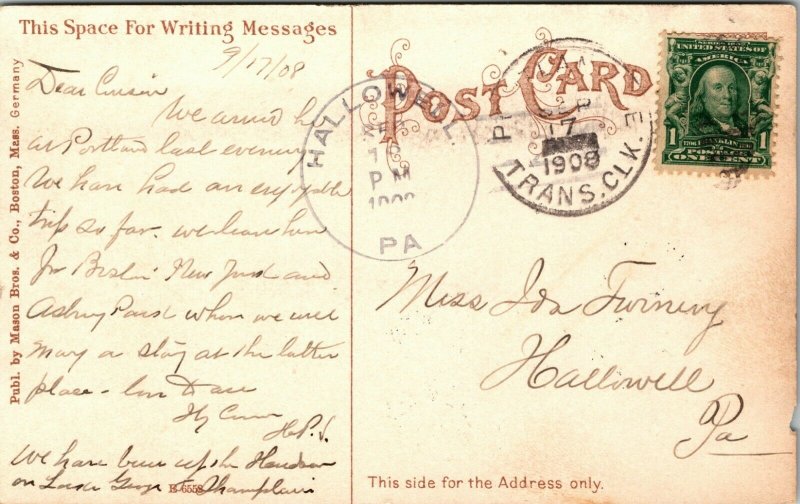 This Space For Writing Messages
9/17/08
Dear Cousin
We arrived
at Portland last evening
We have had an enjoyable
trip so far. we leave here
for Boston New York and
Asbury Park where we will
Many a stay at the latter
place - love to all
Thy Cousin
H.P.
We have been up the Hudson
on Lake George & Champlain
Publ. by Mason Bros. & Co., Boston, Mass. Germany
B-6558
POST CARD
HALLOWELL
SEP
P M
PA
SEP
17
1908
TRANS. CLK. E
SERIES 1902
UNITED STATES OF
AMERICA
1706 FRANKLIN 1790
POSTAGE
1 ONE CENT 1
Miss Ida Twiney
Hallowell
Pa
This side for the Address only.